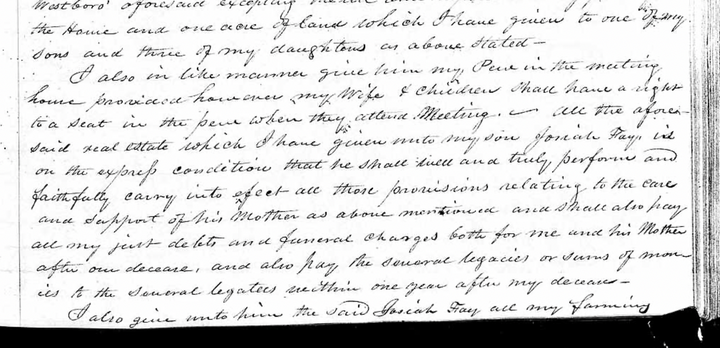 Westboro' aforesaid excepting
the House and one acre of land which I have given to one of my
sons and three of my daughters as above stated –
I also in like manner give him my Pew in the meeting
house provided however my Wife & Children shall have a right
to a seat in the pew when they attend Meeting. – All the afore-
said real estate which I have given unto my son Josiah Fay, is
on the express condition that he shall well and truly perform and
faithfully carry into efect all those provisions relating to the care
and support of his Mother as above mentioned and shall also pay
all my just debts and funeral charges both for me and his Mother
after our decease, and also pay the several legacies or sums of mon-
ies to the several legatees within one year after my decease –
I also give unto him the said Josiah Fay all my farming